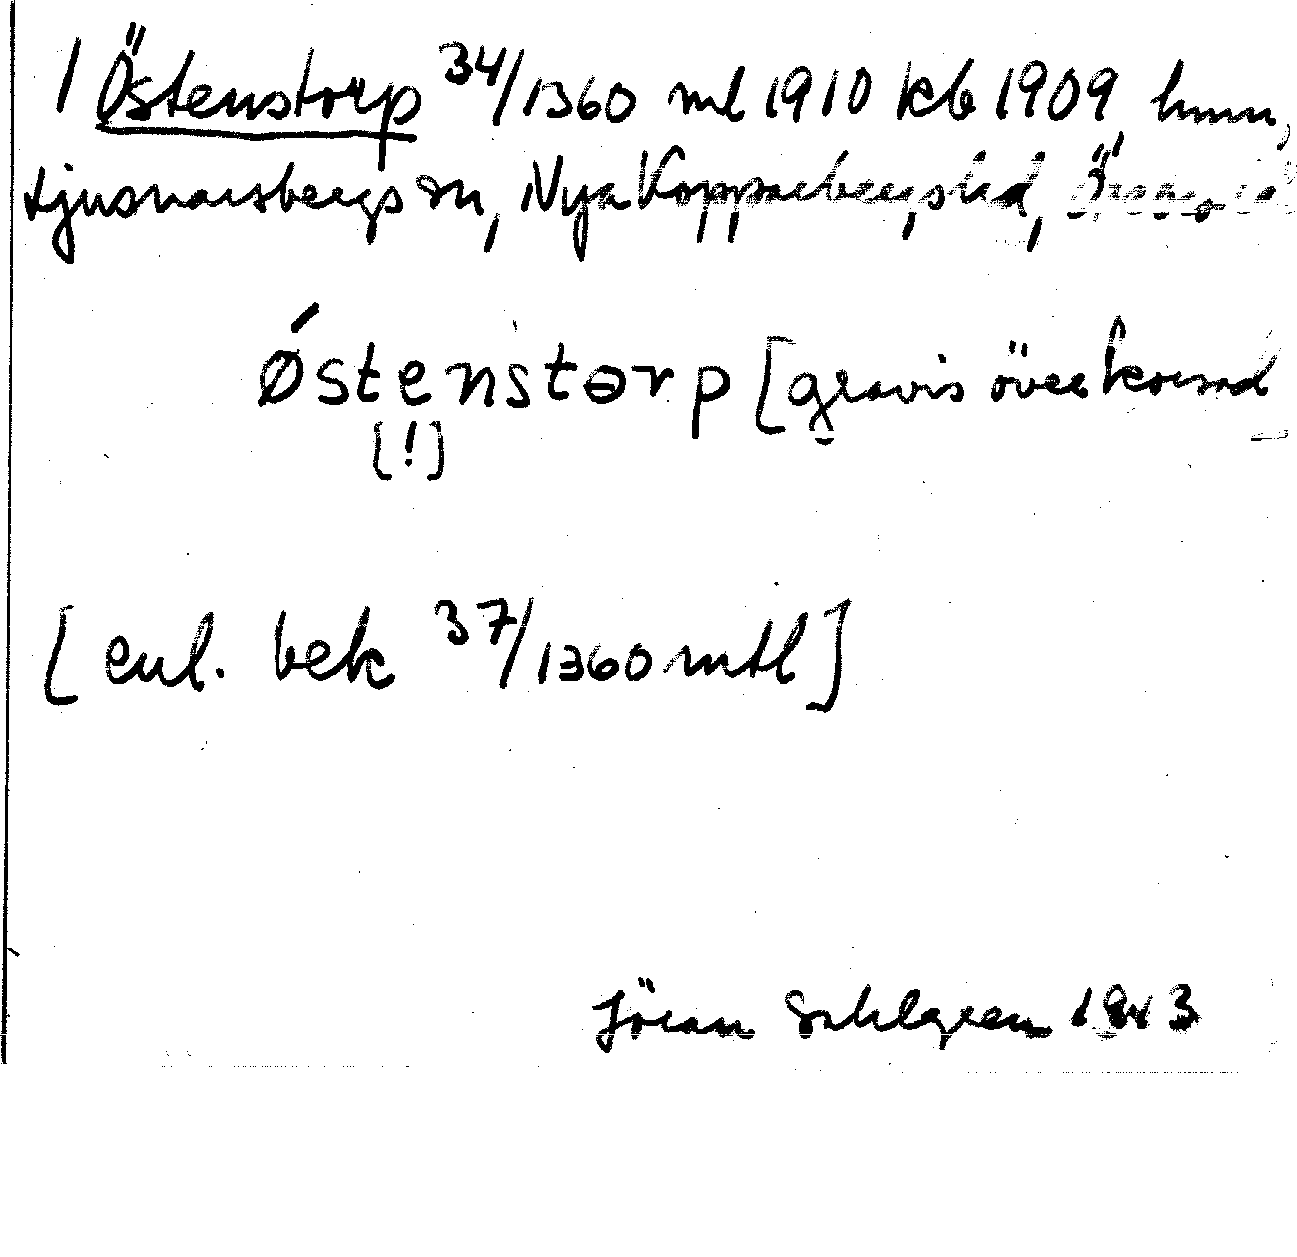 1 Östenstorp 34/1360 ml 1910 kb 1909 hmn,
Ljusnarsbergs sn, Nya Kopparbergs bd,
Ǿstenstɵrp [gravis överkorsad
[!]
[enl. bek 37/1360 mtl]
Jöran Sahlgren 1943